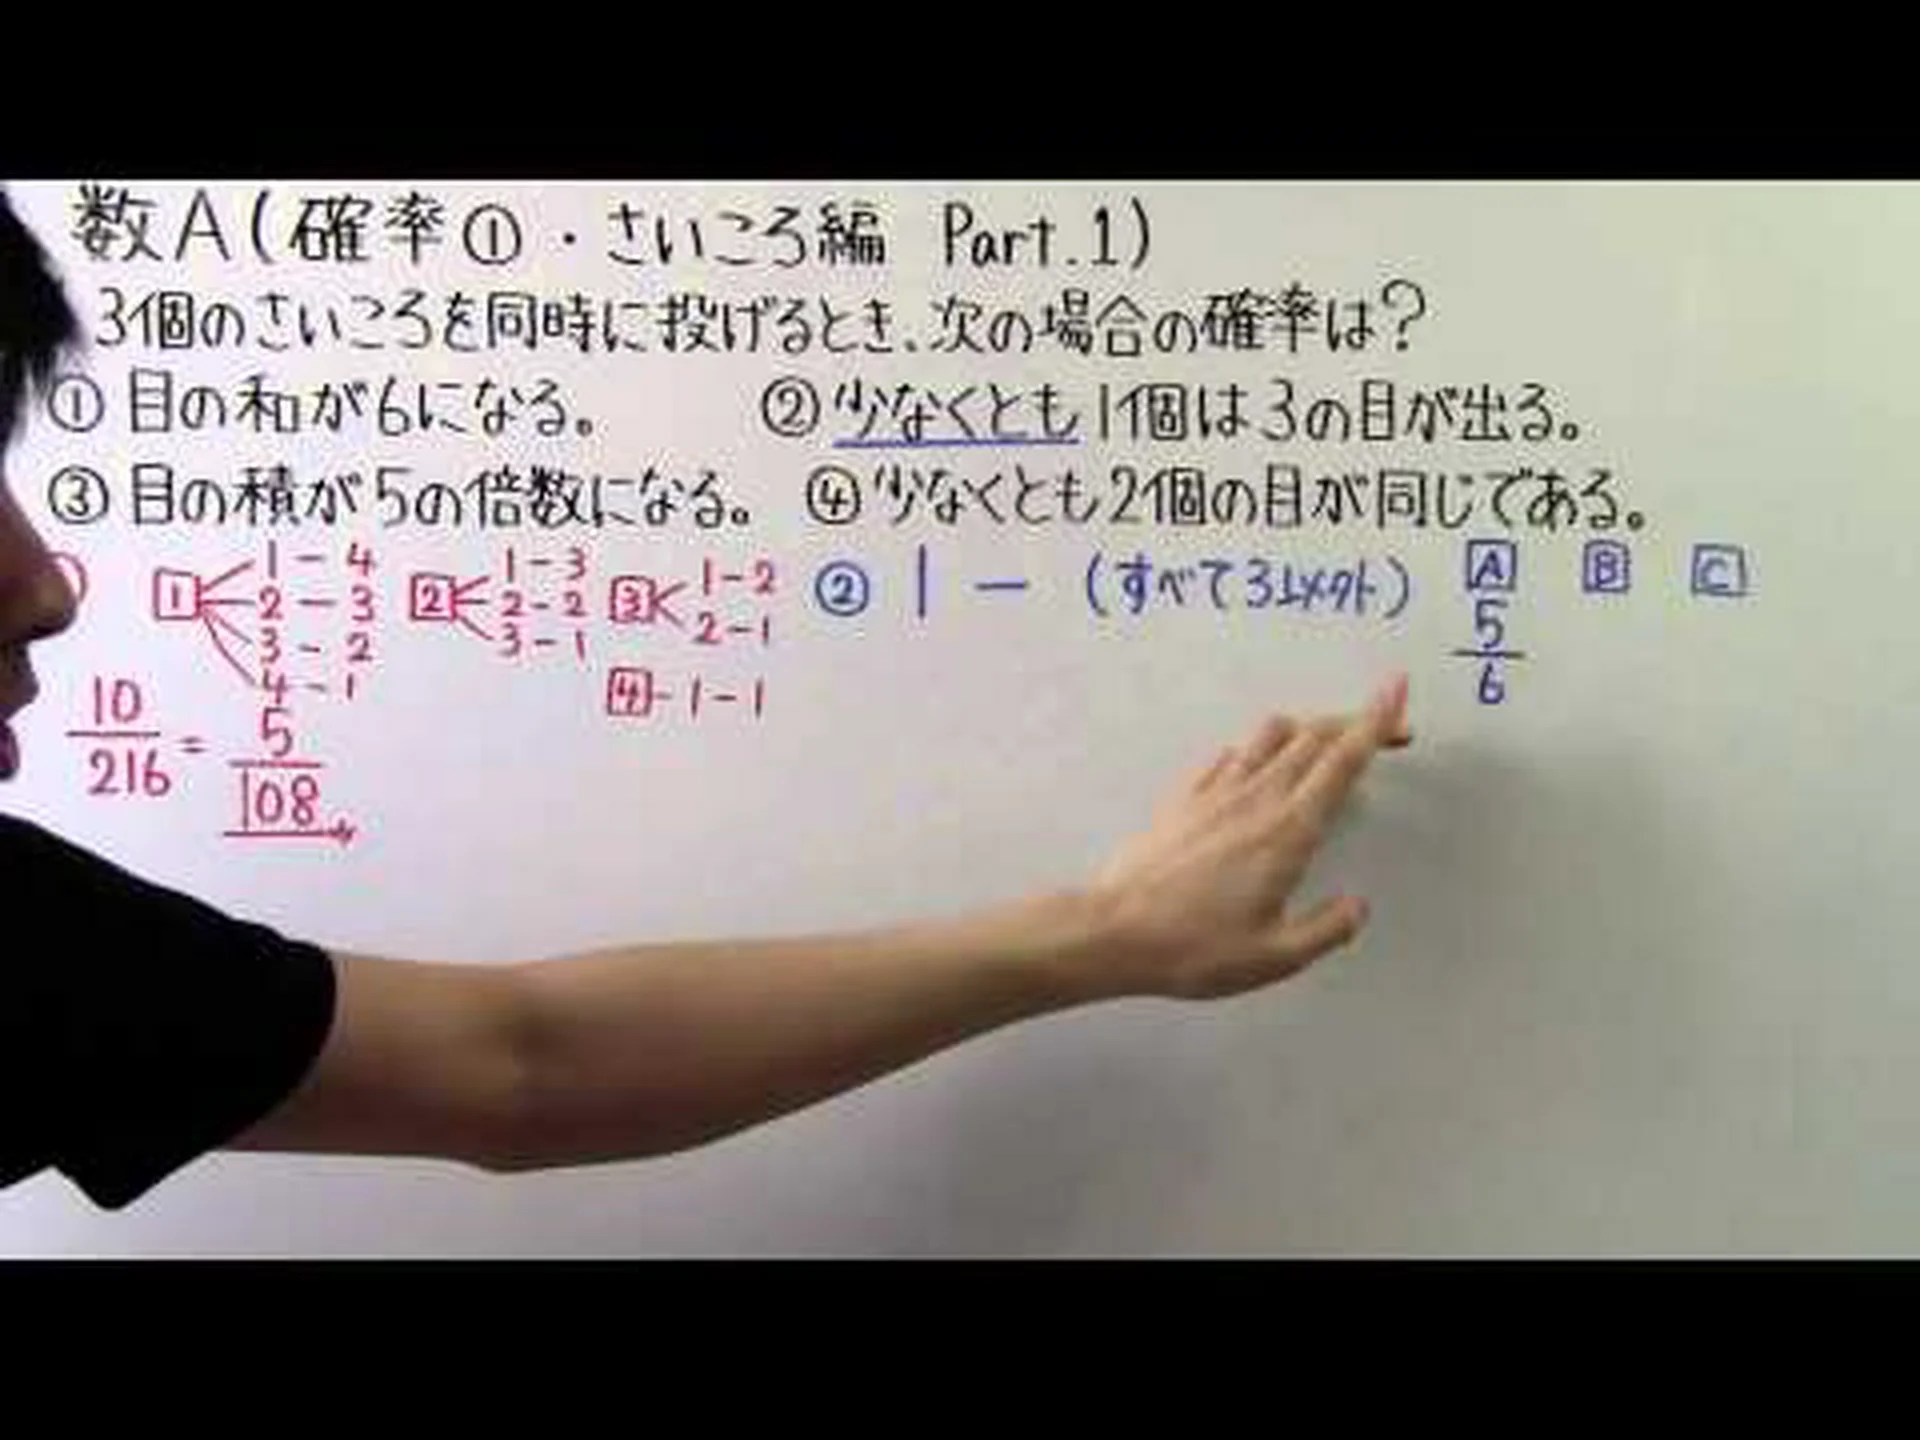 数A(確率①・さいころ編 Part.1)
3個のさいころを同時に投げるとき、次の場合の確率は?
① 目の和が6になる。 ② 少なくとも1個は3の目が出る。
③ 目の積が5の倍数になる。 ④ 少なくとも2個の目が同じである。
1 1-4
2-3
3-2
4-1
2 1-3
2-2
3-1
3 1-2
2-1
4-1-1
10/216 = 5/108
② 1 - (すべて3以外) A B C
5/6